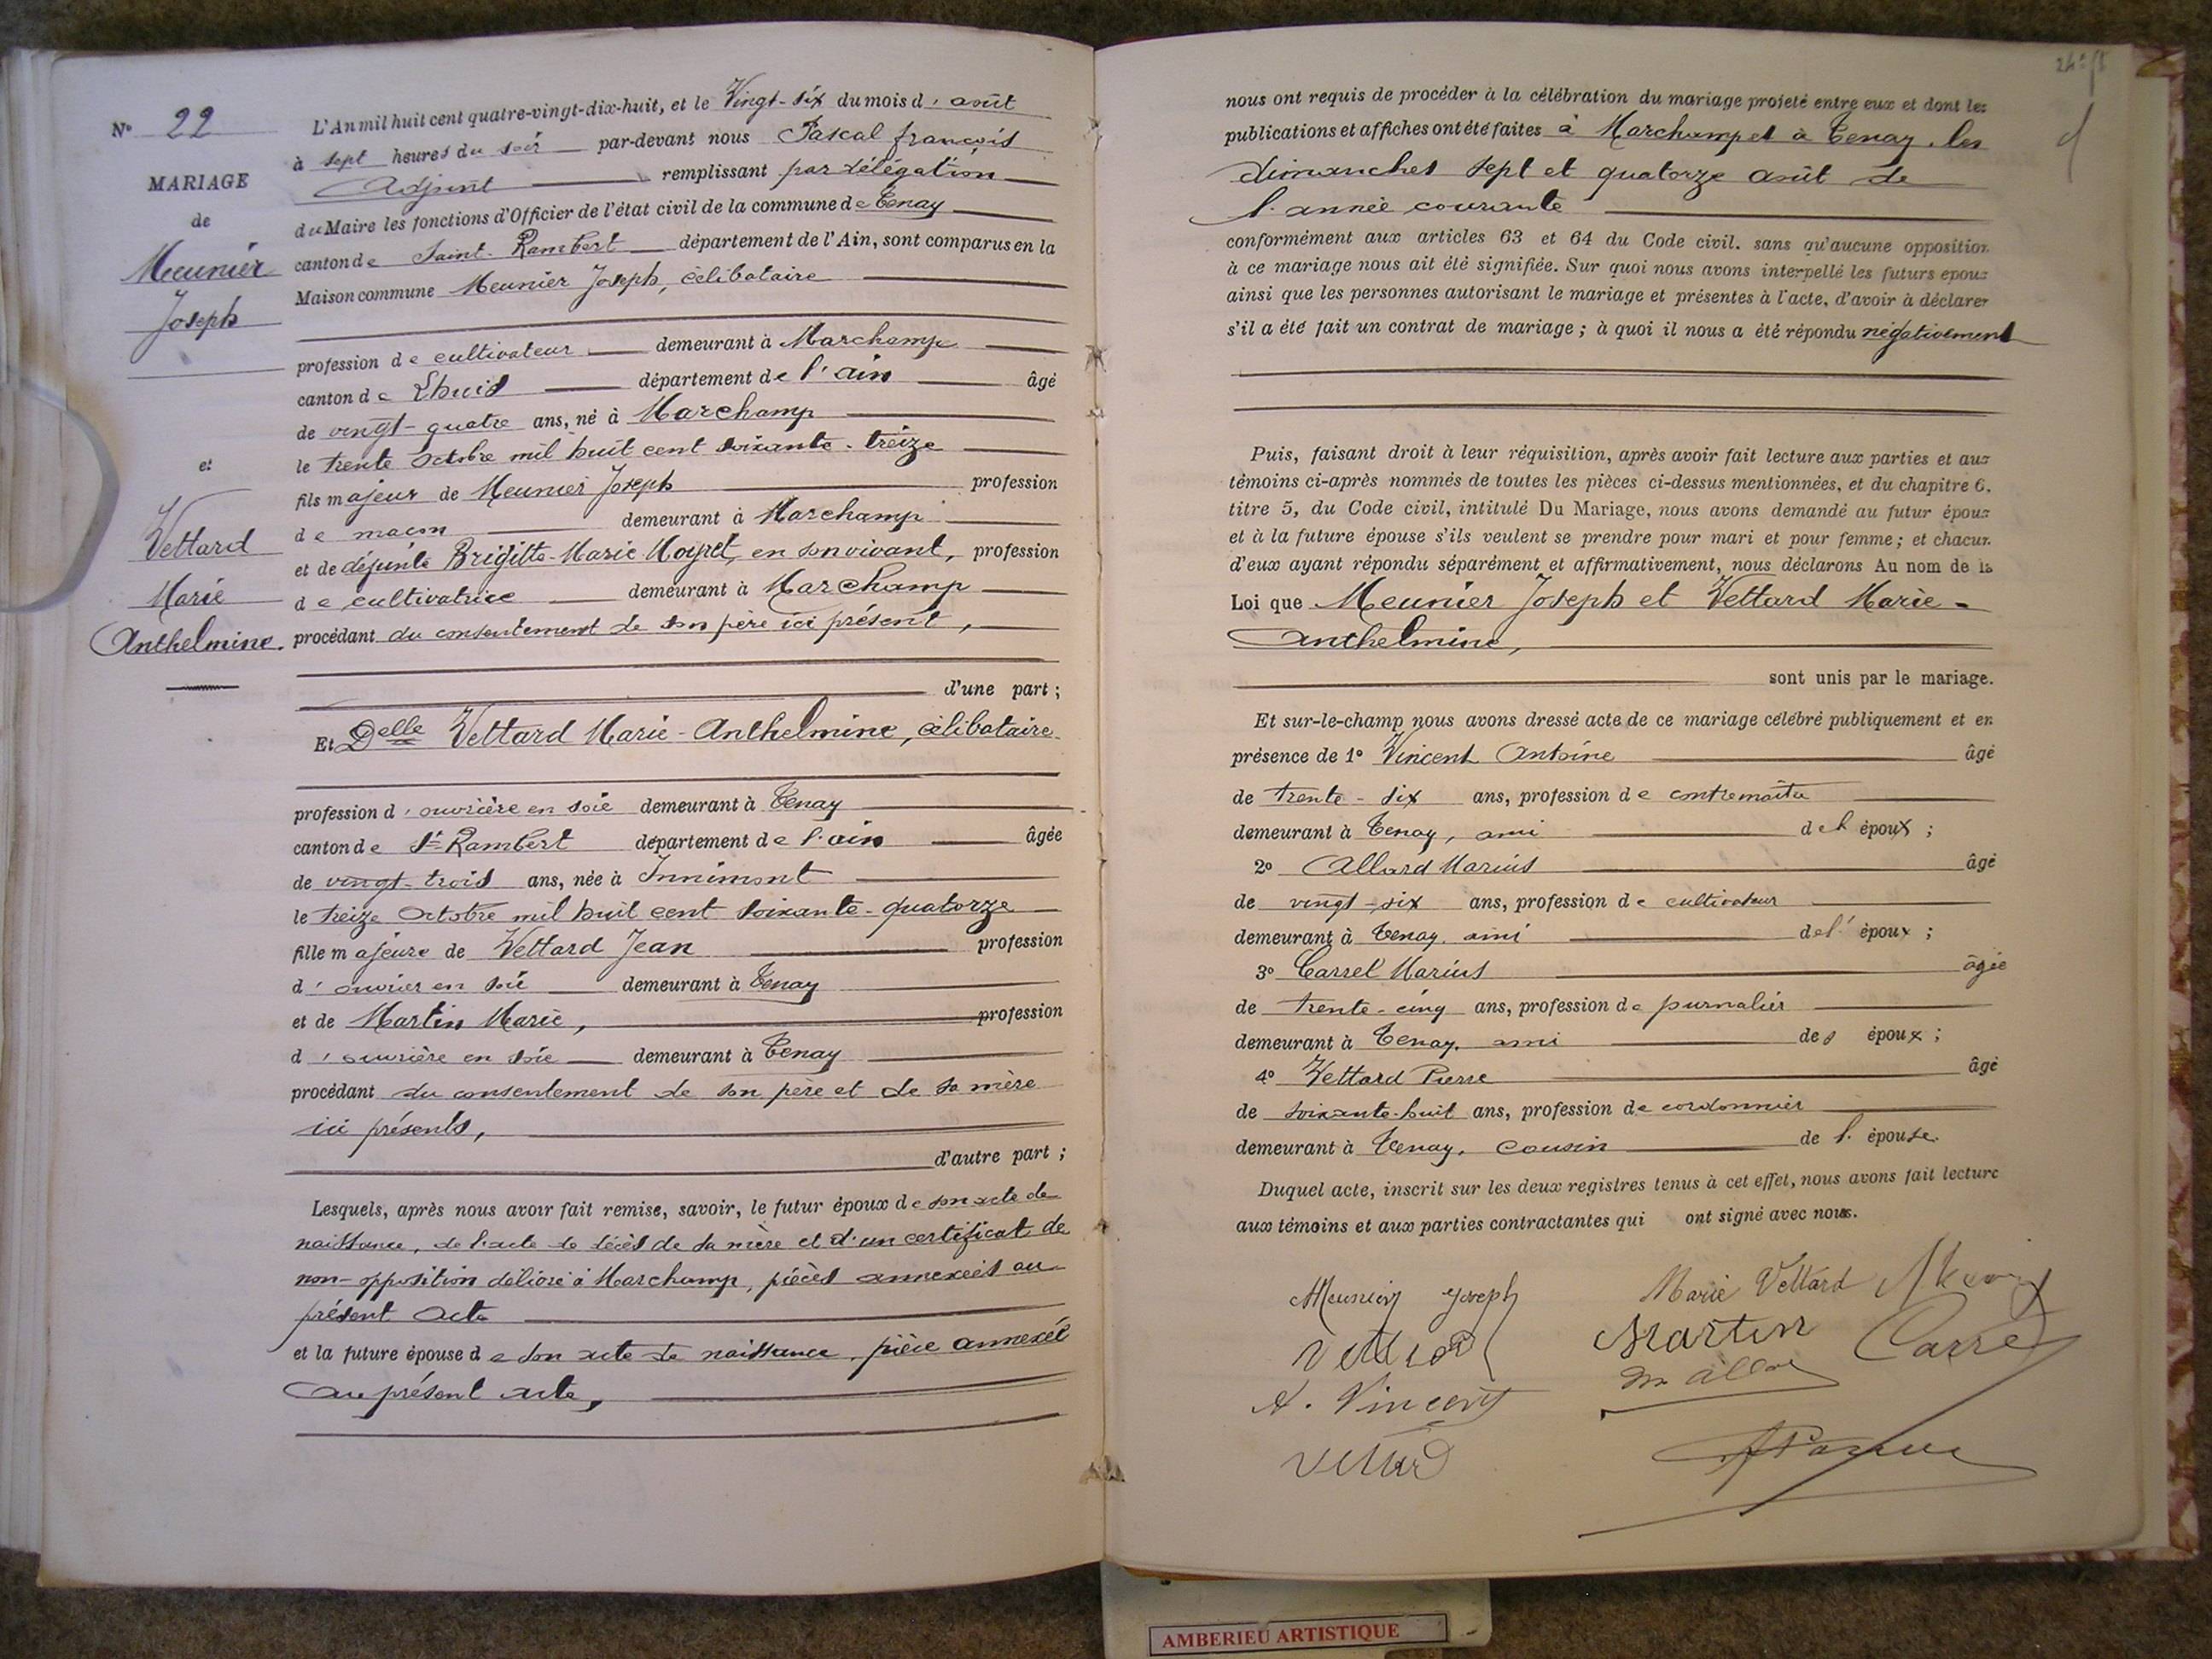 N° 22
MARIAGE
de
Meunier
Joseph
et
Vettard
Marie
Anthelmine.
L'An mil huit cent quatre-vingt-dix-huit, et le Vingt-six du mois d'août
à sept heures du soir par-devant nous Pascal françois
Adjoint remplissant par délégation
du Maire les fonctions d'Officier de l'état civil de la commune de Tenay
canton de Saint-Rambert département de l'Ain, sont comparus en la
Maison commune Meunier Joseph, célibataire
profession de cultivateur demeurant à Marchamp
canton de Lhuis département de l'ain âgé
de vingt-quatre ans, né à Marchamp
le trente octobre mil huit cent soixante-treize
fils majeur de Meunier Joseph profession
de maçon demeurant à Marchamp
et de défunte Brigitte-Marie Moyret, en son vivant, profession
de cultivatrice demeurant à Marchamp
procédant du consentement de son père ici présent,
d'une part ;
Et Delle Vettard Marie-Anthelmine, célibataire
profession d'ouvrière en soie demeurant à Tenay
canton de St-Rambert département de l'ain âgée
de vingt-trois ans, née à Innimont
le treize Octobre mil huit cent soixante-quatorze
fille majeure de Vettard Jean profession
d'ouvrier en soie demeurant à Tenay
et de Martin Marie, profession
d'ouvrière en soie demeurant à Tenay
procédant du consentement de son père et de sa mère
ici présents,
d'autre part ;
Lesquels, après nous avoir fait remise, savoir, le futur époux de son acte de
naissance, de l'acte de décès de sa mère et d'un certificat de
non-opposition délivré à Marchamp, pièces annexées au
présent acte
et la future épouse de son acte de naissance, pièce annexée
au présent acte,
nous ont requis de procéder à la célébration du mariage projeté entre eux et dont les
publications et affiches ont été faites à Marchamp et à Tenay, les
dimanches sept et quatorze août de
l'année courante
conformément aux articles 63 et 64 du Code civil. sans qu'aucune opposition
à ce mariage nous ait été signifiée. Sur quoi nous avons interpellé les futurs epoux
ainsi que les personnes autorisant le mariage et présentes à l'acte, d'avoir à déclarer
s'il a été fait un contrat de mariage ; à quoi il nous a été répondu négativement
Puis, faisant droit à leur réquisition, après avoir fait lecture aux parties et aux
témoins ci-après nommés de toutes les pièces ci-dessus mentionnées, et du chapitre 6.
titre 5, du Code civil, intitulé Du Mariage, nous avons demandé au futur époux
et à la future épouse s'ils veulent se prendre pour mari et pour femme ; et chacun
d'eux ayant répondu séparément et affirmativement, nous déclarons Au nom de la
Loi que Meunier Joseph et Vettard Marie-
Anthelmine,
sont unis par le mariage.
Et sur-le-champ nous avons dressé acte de ce mariage célébré publiquement et en
présence de 1° Vincent Antoine âgé
de trente-six ans, profession de contremaître
demeurant à Tenay, ami de l'époux ;
2° Allard Marius âgé
de vingt-six ans, profession de cultivateur
demeurant à Tenay, ami de l'époux ;
3° Carrel Marius âgé
de trente-cinq ans, profession de journalier
demeurant à Tenay, ami des époux ;
4° Vettard Pierre âgé
de soixante-huit ans, profession de cordonnier
demeurant à Tenay, cousin de l'épouse.
Duquel acte, inscrit sur les deux registres tenus à cet effet, nous avons fait lecture
aux témoins et aux parties contractantes qui ont signé avec nous.
Meunier Joseph Marie Vettard
Vettard Martin Carrel
A. Vincent
Vettard
AMBERIEU ARTISTIQUE